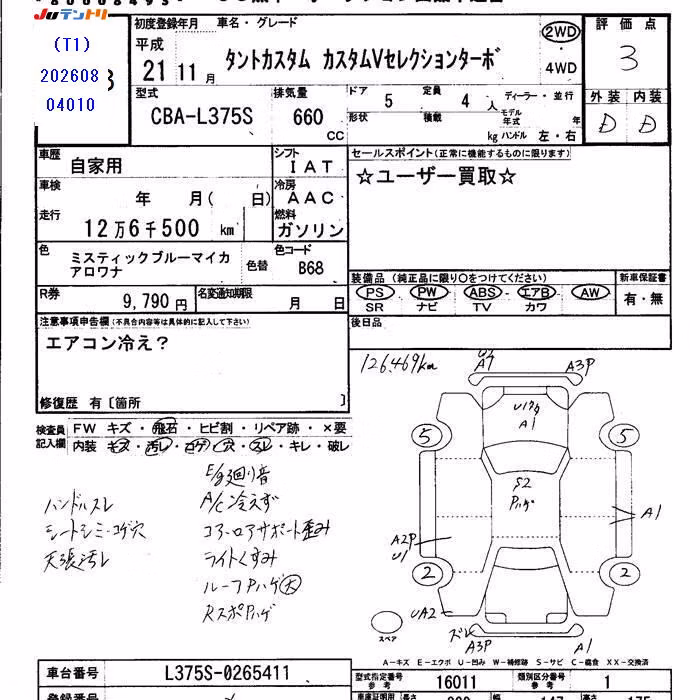 Juテントリ
(T1)
202608
04010
初度登録年月
平成
21 11 月
車名・グレード
タントカスタム カスタムVセレクションターボ
2WD
・
4WD
評価点
3
外装 内装
D D
型式
CBA-L375S
排気量
660
CC
ドア
5
定員
4 人
形状
積載
kg
ディーラー・並行
モデル年式
年
ハンドル 左・右
車歴
自家用
シフト
I A T
車検
年 月( 日)
冷房
A A C
走行
12万6千500 km
燃料
ガソリン
色
ミスティックブルーマイカ
アロワナ
色替
色コード
B68
R券
9,790 円
名変通知期限
月 日
セールスポイント(正常に機能するものに限ります)
☆ユーザー買取☆
装備品 (純正品に限り○をつけてください)
新車保証書
PS PW ABS エアB AW
SR ナビ TV カワ
有・無
後日品
注意事項申告欄(不具合内容等は具体的に記入して下さい)
エアコン冷え?
修復歴 有〔箇所 〕
検査員
記入欄
FW キズ・飛石・ヒビ割・リペア跡・×要
内装 キズ・汚レ・コゲ・穴・スレ・キレ・破レ
E/g廻り音
ハンドルスレ
A/C冷えず
シートシミ・コゲ穴
コアーロアサポート歪み
天張汚レ
ライトくすみ
ルーフPハゲ大
RスポPハゲ
126.469km
A7
A3P
A1
5
5
S2
Pハゲ
A1
A2P
U1
2
2
UA2
スペア
ズレ
A3P
A1
A-キズ E-エクボ U-凹み W-補修跡 S-サビ C-腐食 XX-交換済
車台番号
L375S-0265411
型式指定番号
参考
16011
類別区分番号
参考
1